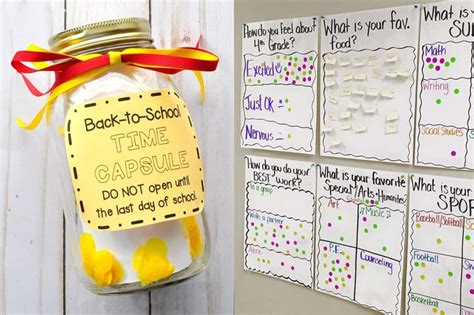 Back-to-School
TIME
CAPSULE
DO NOT open until
the last day of school.
How do you feel about
4th Grade?
Excited
Just OK
Nervous
What is your fav.
food?
What is your fav
Math
Writing
Social Studies
How do you do your
BEST work?
In a group
With a partner
What is your favorite
Special/Arts-Humanities
Art
♫Music♫
P.E.
Counseling
What is your
SPOR
Baseball/Softball
Football
Soccer